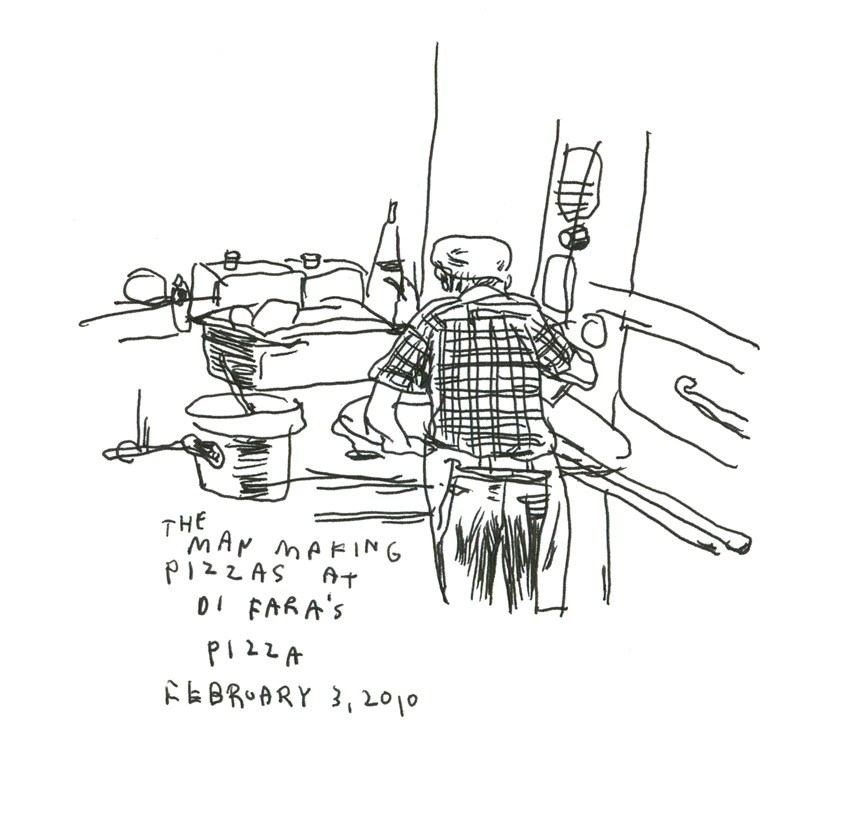 THE
MAN MAKING
PIZZAS AT
DI FARA'S
PIZZA
FEBRUARY 3, 2010